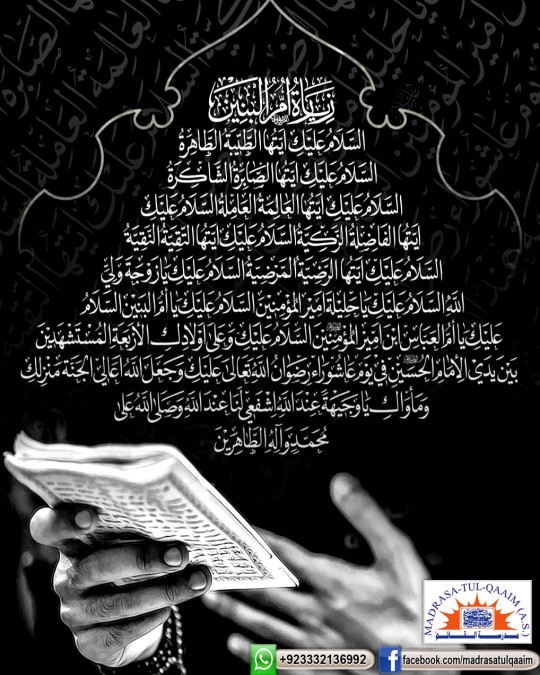 زيارة أم البنين
السَّلَامُ عَلَيْكِ اَيَتُهَا الطَّيِّبَةُ الطَّاهِرَةُ
السَّلَامُ عَلَيْكِ اَيَتُهَا الصَّابِرَةُ الشَّاكِرَةُ
السَّلَامُ عَلَيْكِ اَيَتُهَا الْعَالِمَةُ الْعَامِلَةُ السَّلَامُ عَلَيْكِ
اَيَتُهَا الْفَاضِلَةُ الزَّكِيَةُ السَّلَامُ عَلَيْكِ اَيَتُهَا التَّقِيَّةُ النَّقِيَّةُ
السَّلَامُ عَلَيْكِ اَيَتُهَا الرَّضِيَّةُ الْمَرْضِيَّةُ السَّلَامُ عَلَيْكِ يَا زَوْجَةَ وَلِيِّ
اللّٰهِ السَّلَامُ عَلَيْكِ يَا حَلِيْلَةَ اَمِيْرِ الْمُؤْمِنِيْنَ السَّلَامُ عَلَيْكِ يَا اُمَّ الْبَنِيْنَ السَّلَامُ
عَلَيْكِ يَا اُمَّ الْعَبَّاسِ ابْنِ اَمِيْرِ الْمُؤْمِنِيْنَ السَّلَامُ عَلَيْكِ وَعَلٰى اَوْلَادِكِ الْاَرْبَعَةِ الْمُسْتَشْهَدِيْنَ
بَيْنَ يَدَيِ الْاِمَامِ الْحُسَيْنِ فِيْ يَوْمِ عَاشُوْرَاءَ رِضْوَانُ اللّٰهِ تَعَالٰى عَلَيْكِ وَجَعَلَ اللّٰهُ اَعَالِيَ الْجَنَّةِ مَنْزِلَكِ
وَمَاوَاكِ يَا وَجِيْهَةً عِنْدَ اللّٰهِ اِشْفَعِيْ لَنَا عِنْدَ اللّٰهِ وَصَلَّى اللّٰهُ عَلٰى
مُحَمَّدٍ وَآلِهِ الطَّاهِرِيْنَ
MADRASA-TUL-QAAIM (A.S.)
مدرسة القائم
+923332136992
facebook.com/madrasatulqaaim